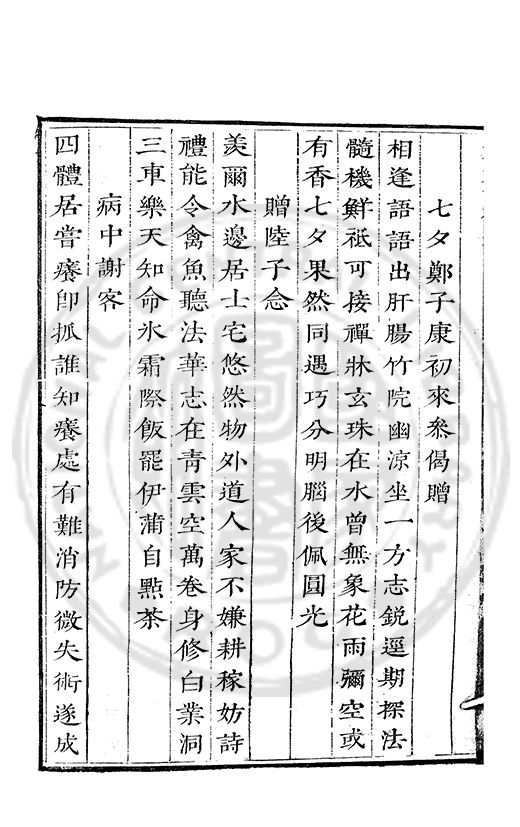 七夕鄭子康初來叅偈贈
相逢語語出肝腸竹院幽涼坐一方志銳逕期探法
髓機鮮祗可接禪牀玄珠在水曾無象花雨彌空或
有香七夕果然同遇巧分明腦後佩圓光
贈陸子念
羡爾水邊居士宅悠然物外道人家不嫌耕稼妨詩
禮能令禽魚聽法華志在靑雲空萬卷身修白業洞
三車樂天知命氷霜際飯罷伊蒲自㸃茶
病中謝客
四體居嘗癢卽抓誰知癢處有難消防微失術遂成